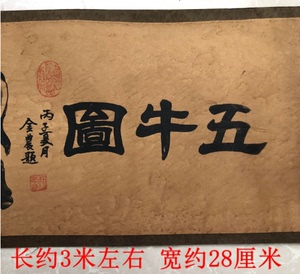 五牛圖
丙子夏月
金農題
长约3米左右 宽约28厘米